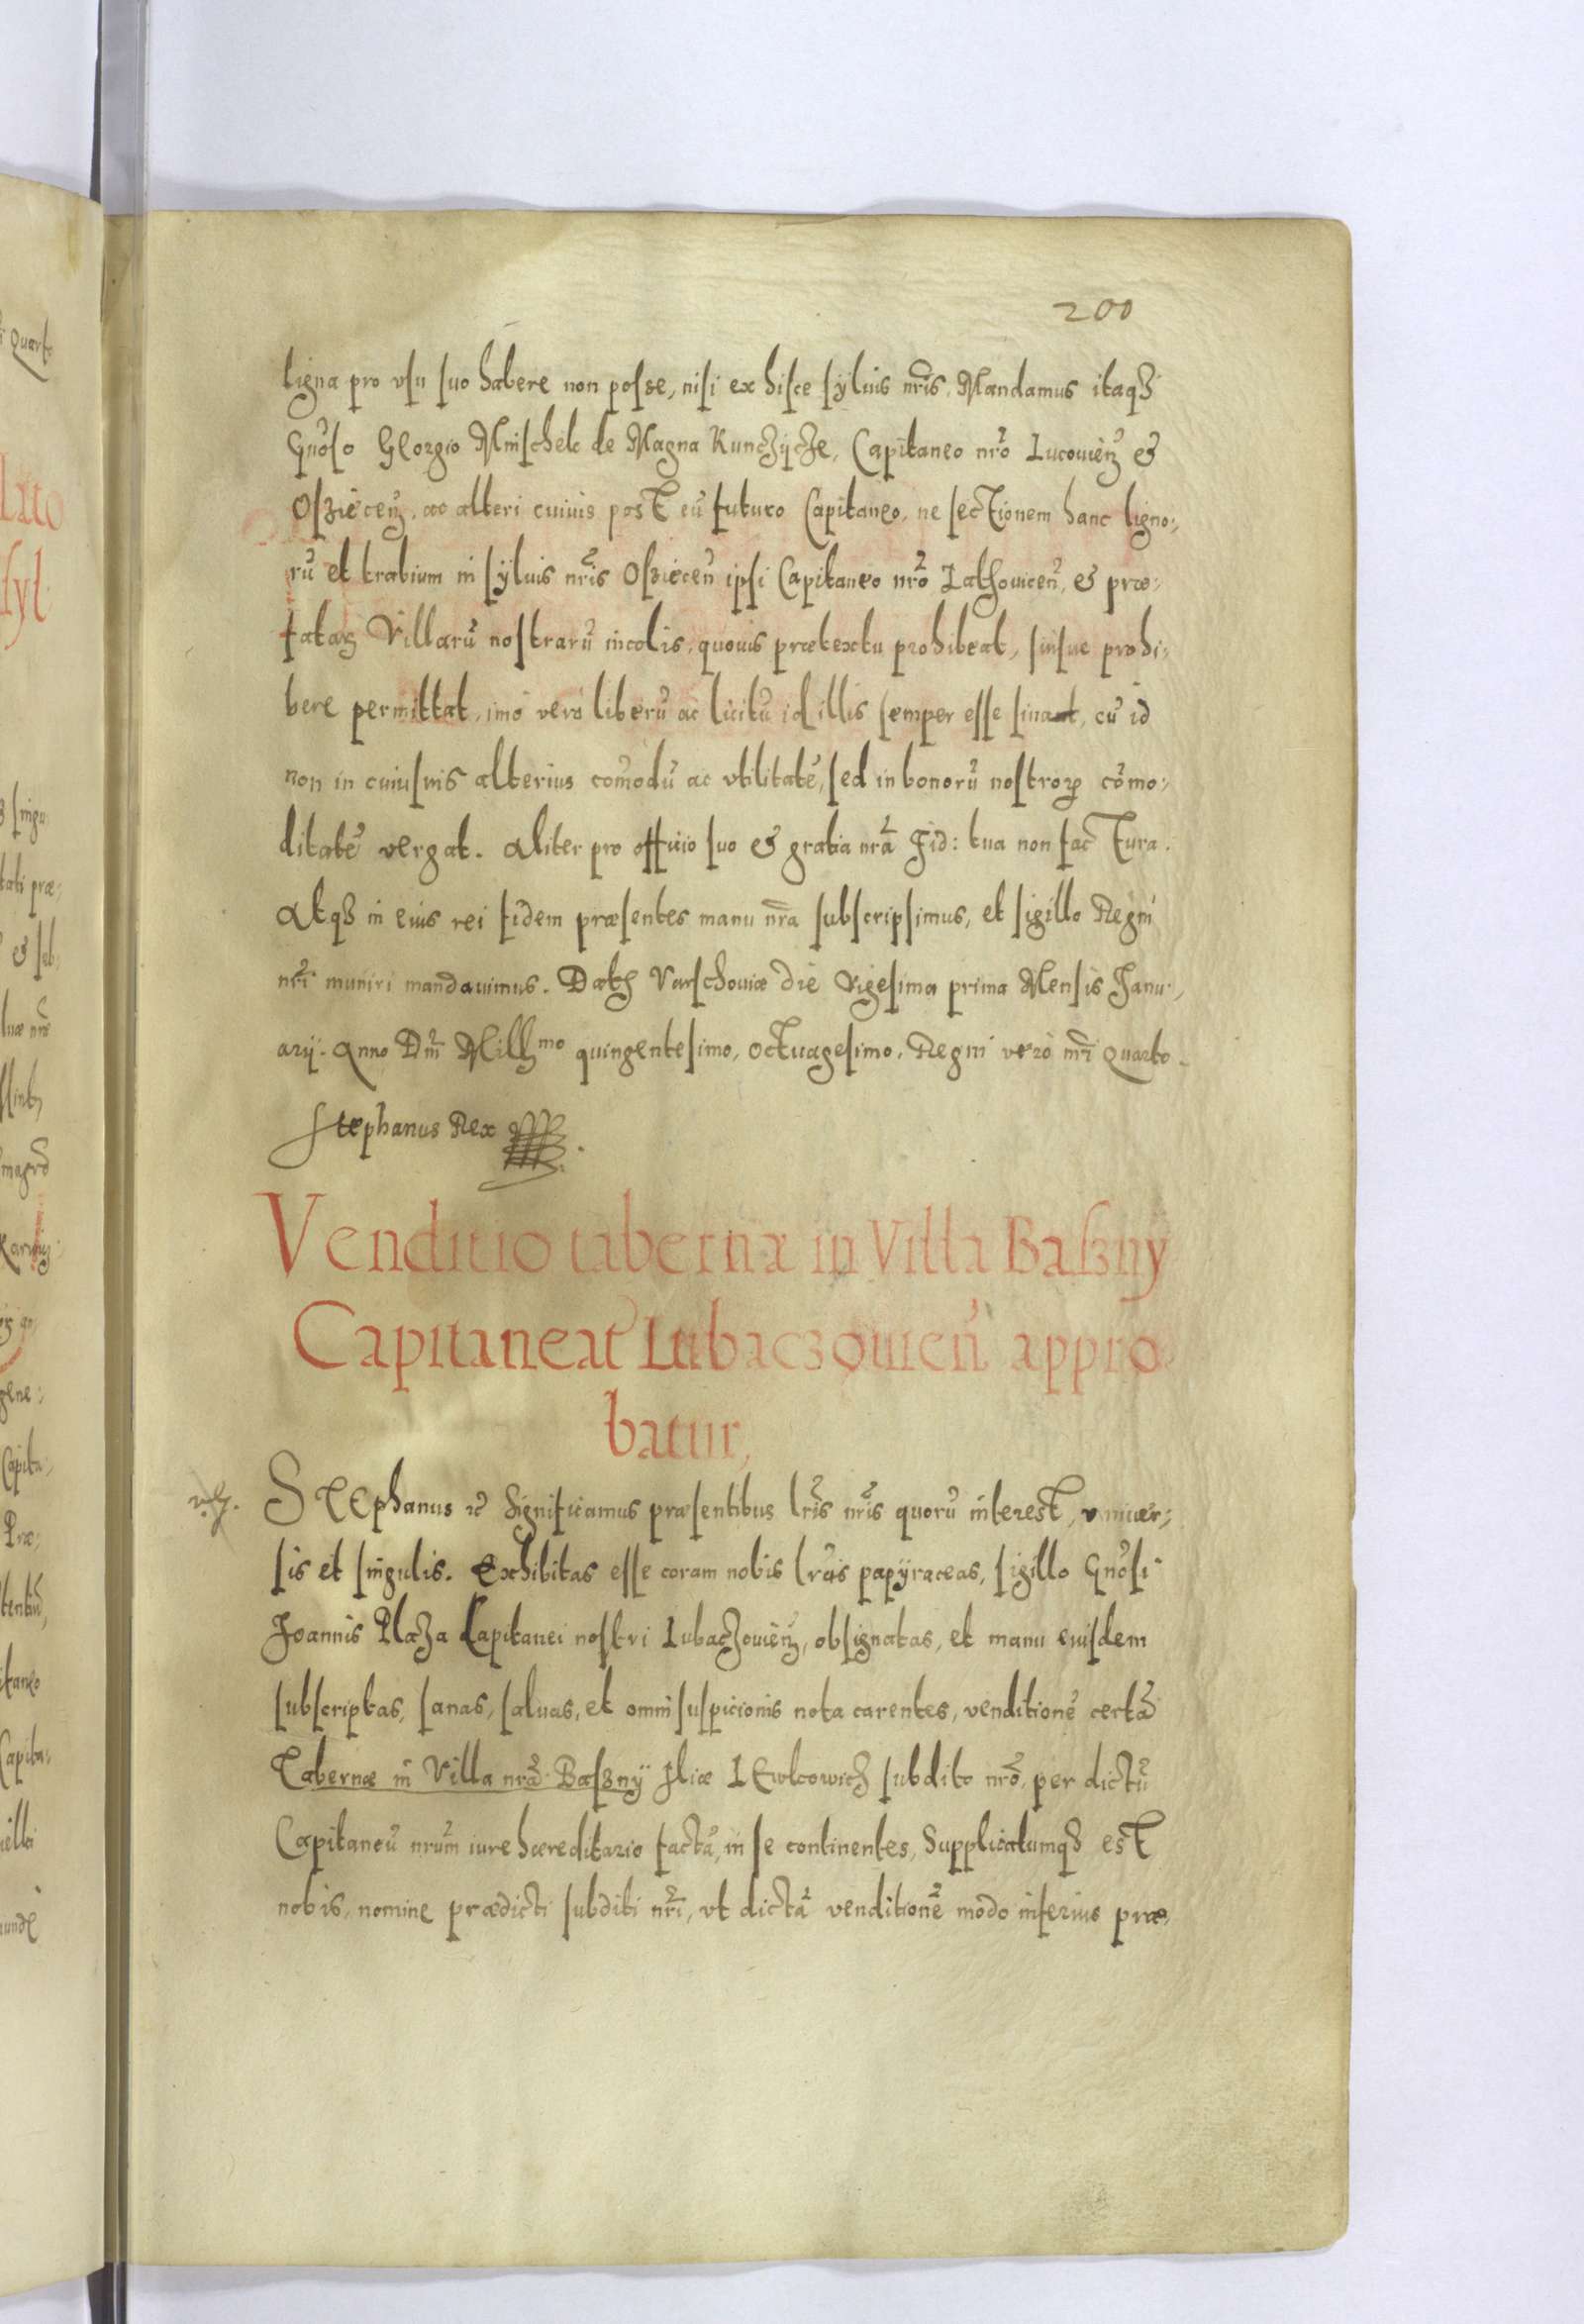 200
ligna pro vsu suo habere non posse, nisi ex hisce syluis nr̃is, Mandamus itaqȝ
Gnõso Georgio Mnischek de Magna Kunczÿcze, Capitaneo nrõ Lucouieñ &
Osziecen̄, ac alteri cuiuis post eũ futuro Capitaneo, ne sectionem hanc ligno:
rũ et trabium in sÿluis nrĩs Oszieceñ ipsi Capitaneo nrõ Lathouiceñ, & præ:
fataꝝ Villarũ nostrarũ incolis, quouis prætextu prohibeat, siusue prohi:
bere permittat, imò vero liberũ ac licitũ id illis semper esse sinat, cũ id
non in cuiusuis alterius com̃odũ ac vtilitatẽ, sed in bonorũ nostroꝝ cõmo:
ditatẽ vergat. Aliter pro officio suo & gratia nrã Fid: tua non factura.
Atqȝ in eius rei fidem præsentes manu nrã subscripsimus, et sigillo Regni
nrĩ muniri mandauimus. Datȝ Varschouiæ die Vigesima prima Mensis Janu:
arij. Anno Dnĩ Mill̃mo quingentesimo, octuagesimo, Regni verò nrĩ Quarto.
Stephanus Rex
Venditio tabernæ in Villa Baszny
Capitaneat̃ Lubaczouieñ appro
batur,
Stephanus &c̃ Significamus præsentibus lrĩs nrĩs quorũ interest, vniuer:
sis et singulis. Exhibitas esse coram nobis lrãs papÿraceas, sigillo Gnõsi
Joannis Plaza Capitanei nostri Lubaczouieñ, obsignatas, et manu eiusdem
subscriptas, sanas, saluas, et omni suspicionis nota carentes, venditionẽ certã
Tabernæ in Villa nrã Baszny Iliæ Lewkowicz subdito nrõ, per dictũ
Capitaneũ nrũm iure hæreditario factã, in se continentes, Supplicatumqȝ est
nobis, nomine prædicti subditi nrĩ, vt dictã venditionẽ modo inferius præ: